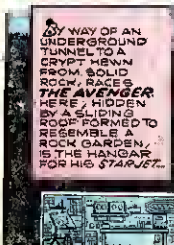 BY WAY OF AN
UNDERGROUND
TUNNEL TO A
CRYPT HEWN
FROM SOLID
ROCK, RACES
THE AVENGER.
HERE, HIDDEN
BY A SLIDING
ROOF FORMED TO
RESEMBLE A
ROCK GARDEN,
IS THE HANGAR
FOR HIS STARJET...